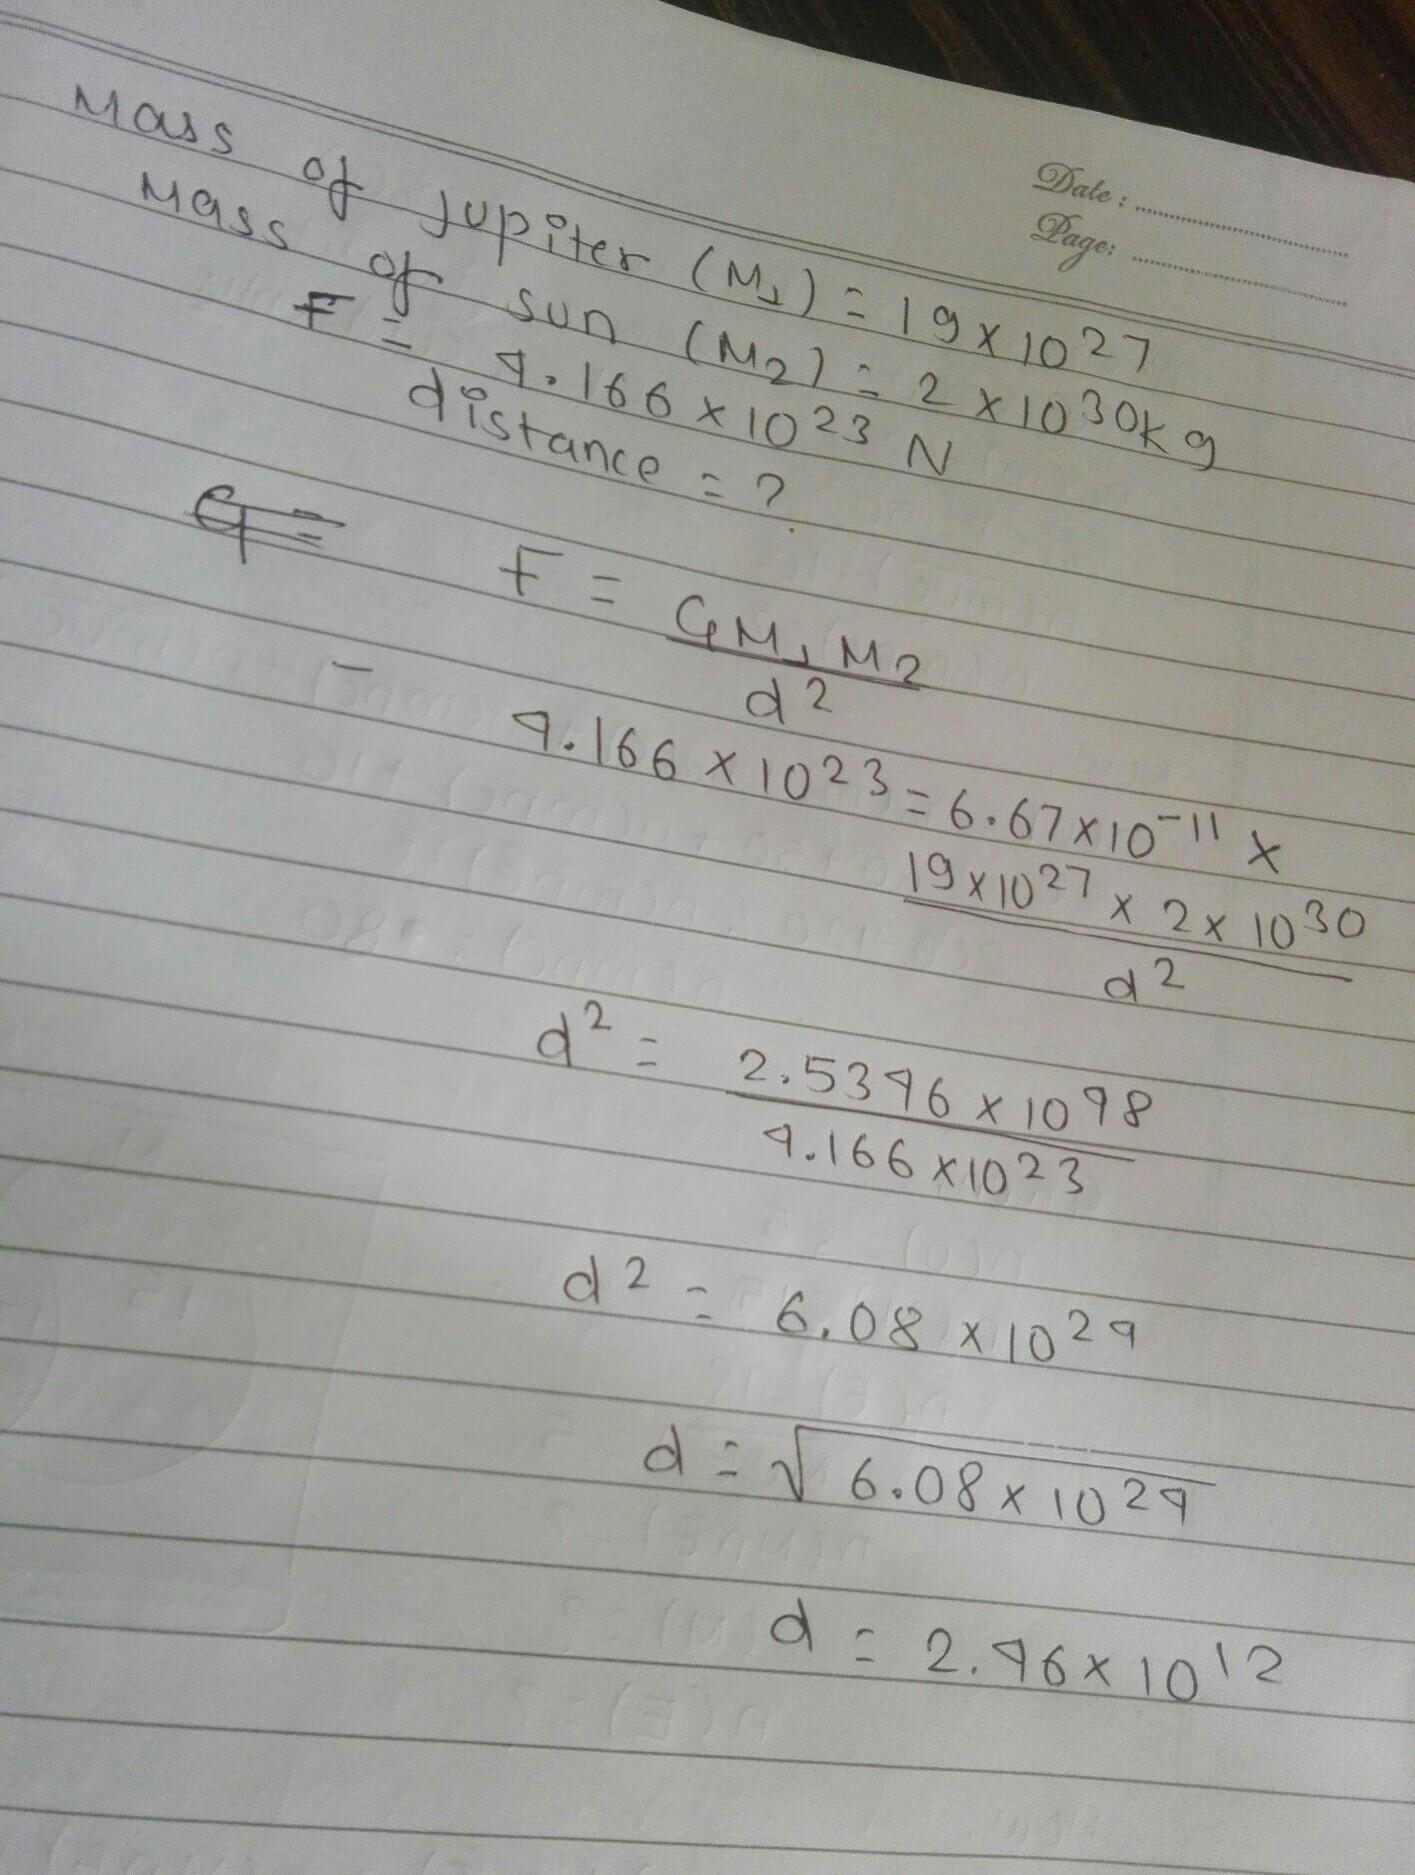 Date : ....................
Page: ....................
Mass of Jupiter (M₁) = 19 × 10²⁷
Mass of sun (M₂) = 2 × 10³⁰ kg
F = 4.166 × 10²³ N
distance = ?
F = GM₁M₂ / d²
4.166 × 10²³ = 6.67 × 10⁻¹¹ ×
19 × 10²⁷ × 2 × 10³⁰
d²
d² = 2.5346 × 10⁴⁸
4.166 × 10²³
d² = 6.08 × 10²⁴
d = √6.08 × 10²⁴
d = 2.46 × 10¹²